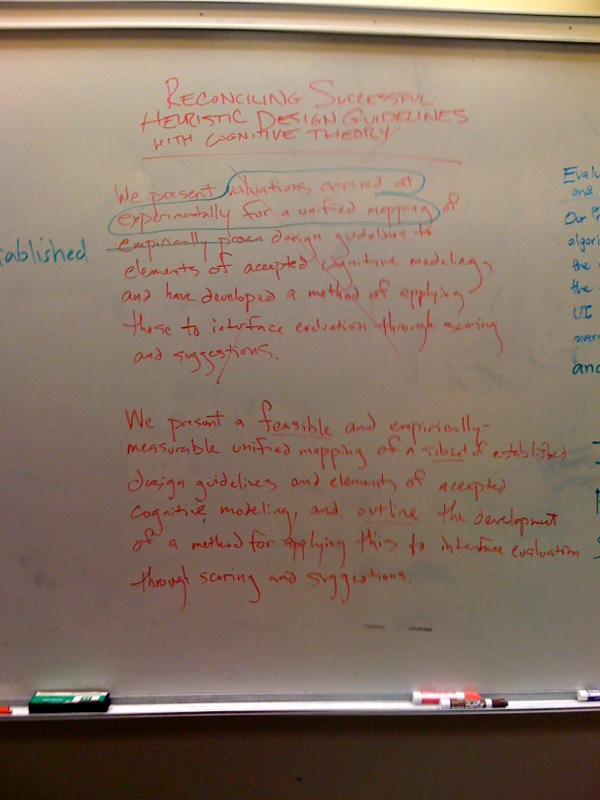 RECONCILING SUCCESSFUL
HEURISTIC DESIGN GUIDELINES
WITH COGNITIVE THEORY
We present valuations arrived at
experimentally for a unified mapping of
empirically proven design guidelines to
elements of accepted cognitive modeling,
and have developed a method of applying
these to interface evaluation through scoring
and suggestions.
We present a feasible and empirically-
measurable unified mapping of a subset of established
design guidelines and elements of accepted
cognitive modeling, and outline the development
of a method for applying this to interface evaluation
through scoring and suggestions.
ablished
Evalu
and
Our
algori
the
the
UI
avera
and